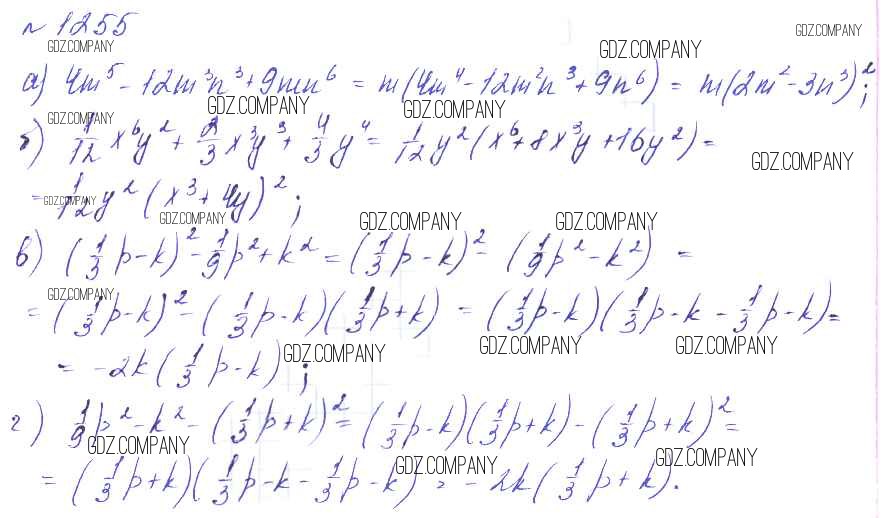 № 1255
GDZ.COMPANY GDZ.COMPANY GDZ.COMPANY
а) 4m⁵ - 12m³n³ + 9mn⁶ = m(4m⁴ - 12m²n³ + 9n⁶) = m(2m² - 3n³)²;
GDZ.COMPANY GDZ.COMPANY GDZ.COMPANY
б) 1/12 x⁶y² + 2/3 x³y³ + 4/3 y⁴ = 1/12 y²(x⁶ + 8x³y + 16y²) =
GDZ.COMPANY
= 1/12 y²(x³ + 4y)²;
GDZ.COMPANY
GDZ.COMPANY GDZ.COMPANY GDZ.COMPANY
в) (1/3 p - k)² - 1/9 p² + k² = (1/3 p - k)² - (1/9 p² - k²) =
GDZ.COMPANY
= (1/3 p - k)² - (1/3 p - k)(1/3 p + k) = (1/3 p - k)(1/3 p - k - 1/3 p - k) =
GDZ.COMPANY GDZ.COMPANY GDZ.COMPANY
= -2k(1/3 p - k);
г) 1/9 p² - k² - (1/3 p + k)² = (1/3 p - k)(1/3 p + k) - (1/3 p + k)² =
GDZ.COMPANY GDZ.COMPANY GDZ.COMPANY
= (1/3 p + k)(1/3 p - k - 1/3 p - k) = -2k(1/3 p + k).